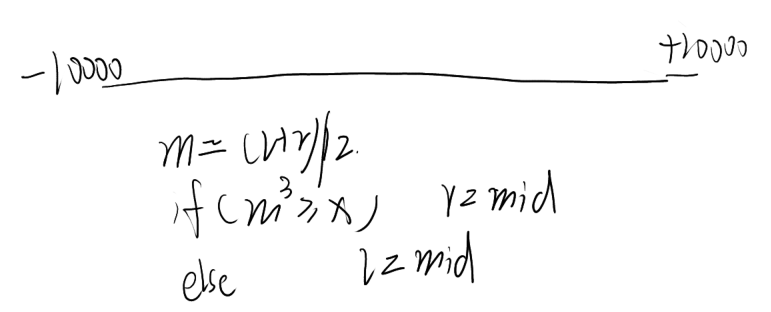 -10000 +10000
m = (l+r)/2.
if (m³ ≥ x) r = mid
else l = mid